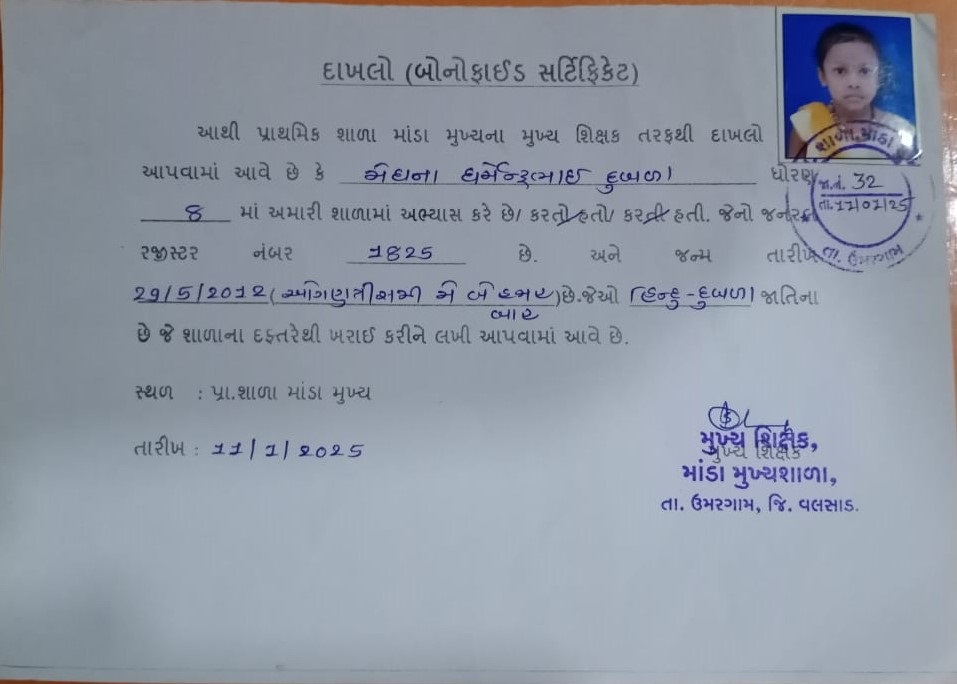 દાખલો (બોનોફાઈડ સર્ટિફિકેટ)
આથી પ્રાથમિક શાળા માંડા મુખ્યના મુખ્ય શિક્ષક તરફથી દાખલો
આપવામાં આવે છે કે મેઘના ધર્મેન્દ્રભાઈ દુબળા ધોરણ
8 માં અમારી શાળામાં અભ્યાસ કરે છે/ કરતો હતો/ કરતી હતી. જેનો જનરલ
રજીસ્ટર નંબર 1825 છે. અને જન્મ તારીખ
29/5/2012 (ઓગણત્રીસમી મે બે હજાર બાર) છે.જેઓ હિન્દુ-દુબળા જાતિના
છે જે શાળાના દફતરેથી ખરાઈ કરીને લખી આપવામાં આવે છે.
સ્થળ : પ્રા.શાળા માંડા મુખ્ય
તારીખ : 11/1/2025
મુખ્ય શિક્ષક
મુખ્ય શિક્ષક,
માંડા મુખ્યશાળા,
તા. ઉમરગામ, જિ. વલસાડ.
શાળા, માંડા
જા.નં. 32
તા. 11/01/25
તા. ઉમરગામ